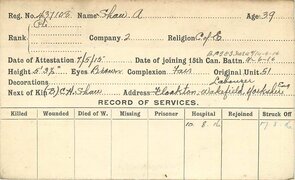 Reg. No. 437105 Name Shaw A Age 39
Rank Pte Company 2 Religion C of E
Date of Attestation 7/5/15 Date of joining 15th Can. Battn. -6-16
Height 5' 3¾" Eyes Brown Complexion Fair Original Unit 51
Decorations Labourer
Next of Kin (B) C.H. Shaw Address Flockton, Wakefield, Yorkshire Eng
RECORD OF SERVICES.
Killed Wounded Died of W. Missing Prisoner Hospital Rejoined Struck Off